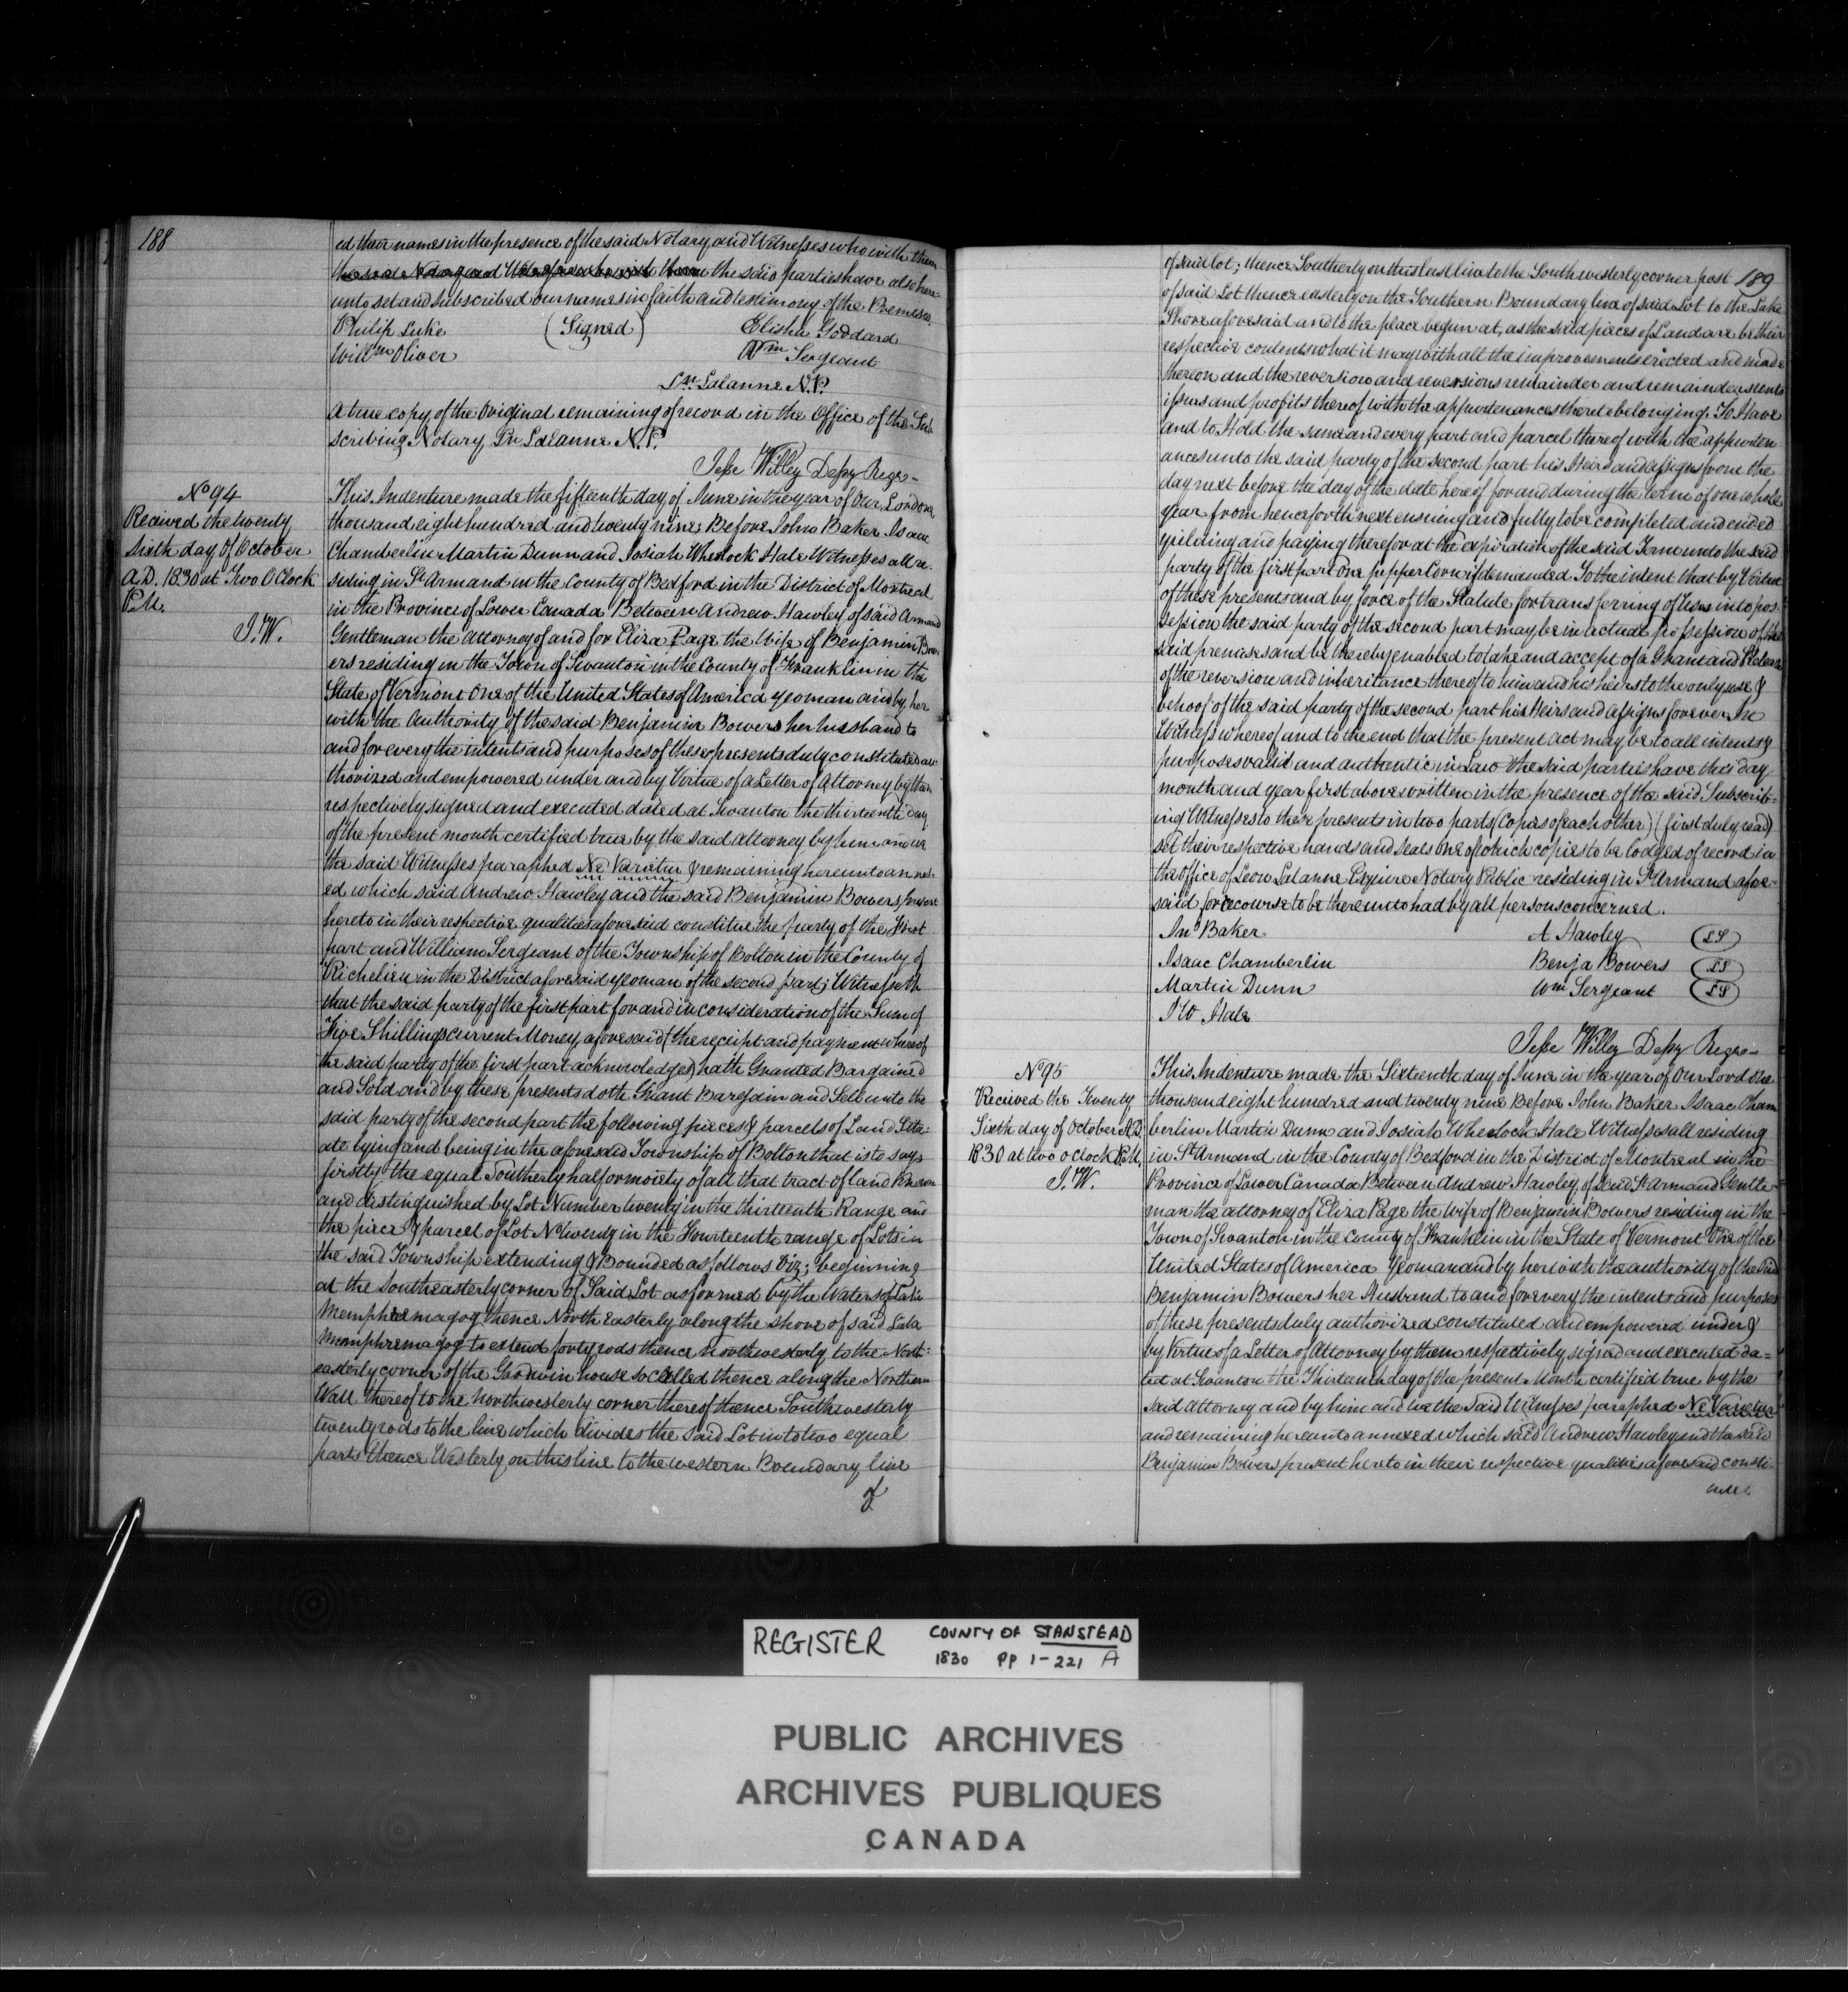 188
ed their names in the presence of the said Notary and Witnesses who with them
the said Notary and Witnesses who with them the said parties have also here-
unto set and subscribed our names in faith and testimony of the Premises.
Philip Luke (Signed) Elisha Goddard
Willm Oliver Wm Sergeant
Ln Lalanne N.P.
A true copy of the Original remaining of record in the Office of the Sub
scribing Notary Ln Lalanne N.P.
Jesse Willey Depy Regr-
No 94
Received the twenty
Sixth day of October
A.D. 1830 at Two O Clock
P.M.
J.W.
This Indenture made the fifteenth day of June in the year of Our Lord one
thousand eight hundred and twenty nine Before John Baker Isaac
Chamberlin Martin Dunn and Josiah Wheelock Hale Witnesses all re-
siding in St Armand in the County of Bedford in the District of Montreal
in the Province of Lower Canada Between Andrew Hawley of said Armand
Gentleman the Attorney of and for Eliza Page the Wife of Benjamin Bow-
ers residing in the Town of Swanton in the County of Franklin in the
State of Vermont One of the United States of America yeoman and by her
with the Authority of the said Benjamin Bowers her husband to
and for every the intents and purposes of these presents duly constituted au
thorized and empowered under and by Virtue of a Letter of Attorney by them
respectively signed and executed dated at Swanton the thirteenth day
of the present month certified true by the said Attorney by him and we
the said Witnesses paraphed Ne Varietur & remaining hereunto annex-
ed which said Andrew Hawley and the said Benjamin Bowers present
hereto in their respective qualities aforesaid constitue the party of the First
part and William Sergeant of the Township of Bolton in the County of
Richelieu in the District aforesaid yeoman of the second part; Witnesseth
that the said party of the first part for and in consideration of the Sum of
Five Shillings current Money aforesaid (the receipt and payment whereof
the said party of the first part acknowledges) hath Granted Bargained
and Sold and by these presents doth Grant Bargain and Sell unto the
said party of the second part the following pieces & parcels of Land Situ-
ate lying and being in the aforesaid Township of Bolton that is to say
firstly the equal Southerly half or moiety of all that tract of land known
and distinguished by Lot Number twenty in the thirteenth Range and
the piece & parcel of Lot No twenty in the Fourteenth range of Lots in
the said Township extending & Bounded as follows Viz; beginning
at the Southeasterly corner of Said Lot as formed by the Waters of Lake
Memphremagog thence North Easterly along the shore of said Lake
Memphremagog to extend forty rods thence Northwesterly to the North-
easterly corner of the Goodwin house so called thence along the Northern
Wall thereof to the Northwesterly corner thereof thence Southwesterly
twenty rods to the line which divides the said Lot into two equal
parts thence Westerly on this line to the western Boundary line
of
189
of said lot; thence Southerly on this last line to the Southwesterly corner post
of said Lot thence easterly on the Southern Boundary line of said Lot to the Lake
Shore aforesaid and to the place begun at, as the said pieces of Land are be their
respective contents what it may with all the improvements erected and made
thereon and the reversion and reversions remainder and remainders rents
issues and profits thereof with the appurtenances thereto belonging. To Have
and to Hold the same and every part and parcel thereof with the appurten
ances unto the said party of the second part his Heirs and assigns from the
day next before the day of the date hereof for and during the term of one whole
year from henceforth next ensuing and fully to be completed and ended
yielding and paying therefor at the expiration of the said Term unto the said
party of the first part One pepper Corn if demanded To the intent that by Virtue
of these presents and by force of the Statute for transferring of Uses into pos-
session the said party of the second part may be in actual possession of the
said premises and be thereby enabled to take and accept of a Grant and Release
of the reversion and inheritance thereof to him and his heirs to the only use &
behoof of the said party of the second part his Heirs and assigns forever. In
Witness whereof and to the end that the present act may be to all intents &
purposes valid and authentic in Law the said parties have this day
month and year first above written in the presence of the said Subscrib-
ing Witnesses to these presents in two parts (Copies of each other) (first duly read)
set their respective hands and seals One of which copies to be lodged of record in
the office of Leon Lalanne Esquire Notary Public residing in St Armand afore-
said for recourse to be thereunto had by all persons concerned.
Jno Baker A Hawley LS
Isaac Chamberlin Benja Bowers LS
Martin Dunn Wm Sergeant LS
J W Hale
Jesse Willey Depy Regr-
No 95
Received the Twenty
Sixth day of October A.D.
1830 at two o Clock P.M.
J.W.
This Indenture made the Sixteenth day of June in the year of Our Lord One
thousand eight hundred and twenty nine Before John Baker Isaac Cham
berlin Martin Dunn and Josiah Wheelock Hale Witnesses all residing
in St Armand in the County of Bedford in the District of Montreal in the
Province of Lower Canada Between Andrew Hawley of Said St Armand Gentle-
man the attorney of Eliza Page the Wife of Benjamin Bowers residing in the
Town of Swanton in the County of Franklin in the State of Vermont One of the
United States of America Yeoman and by her with the authority of the said
Benjamin Bowers her Husband to and for every the intents and purposes
of these presents duly authorized constituted and empowered under &
by Virtue of a Letter of Attorney by them respectively signed and executed da=
ted at Swanton the Thirteenth day of the present Month certified true by the
said Attorney and by him and we the Said Witnesses paraphed Ne Varietur
and remaining hereunto annexed which said Andrew Hawley and the said
Benjamin Bowers present hereto in their respective qualities aforesaid consti-
REGISTER COUNTY OF STANSTEAD
1830 PP 1-221 A
PUBLIC ARCHIVES
ARCHIVES PUBLIQUES
CANADA